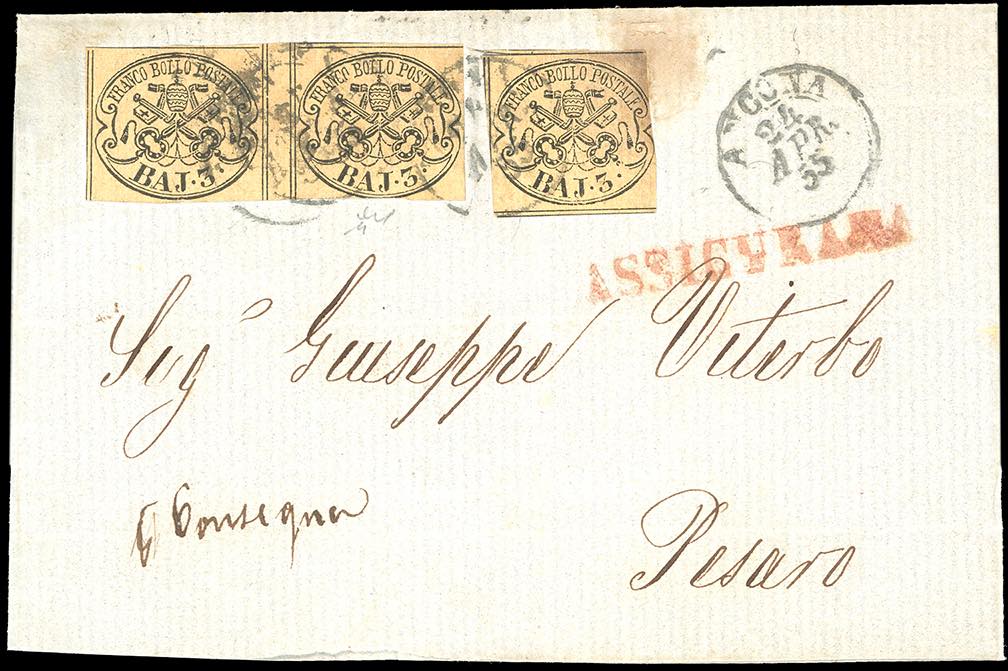 FRANCO BOLLO POSTALE
BAJ. 3.
FRANCO BOLLO POSTALE
BAJ. 3.
FRANCO BOLLO POSTALE
BAJ. 3.
ANCONA
24
APR.
55
Sigr Giuseppe Viterbo
Consegna
Pesaro